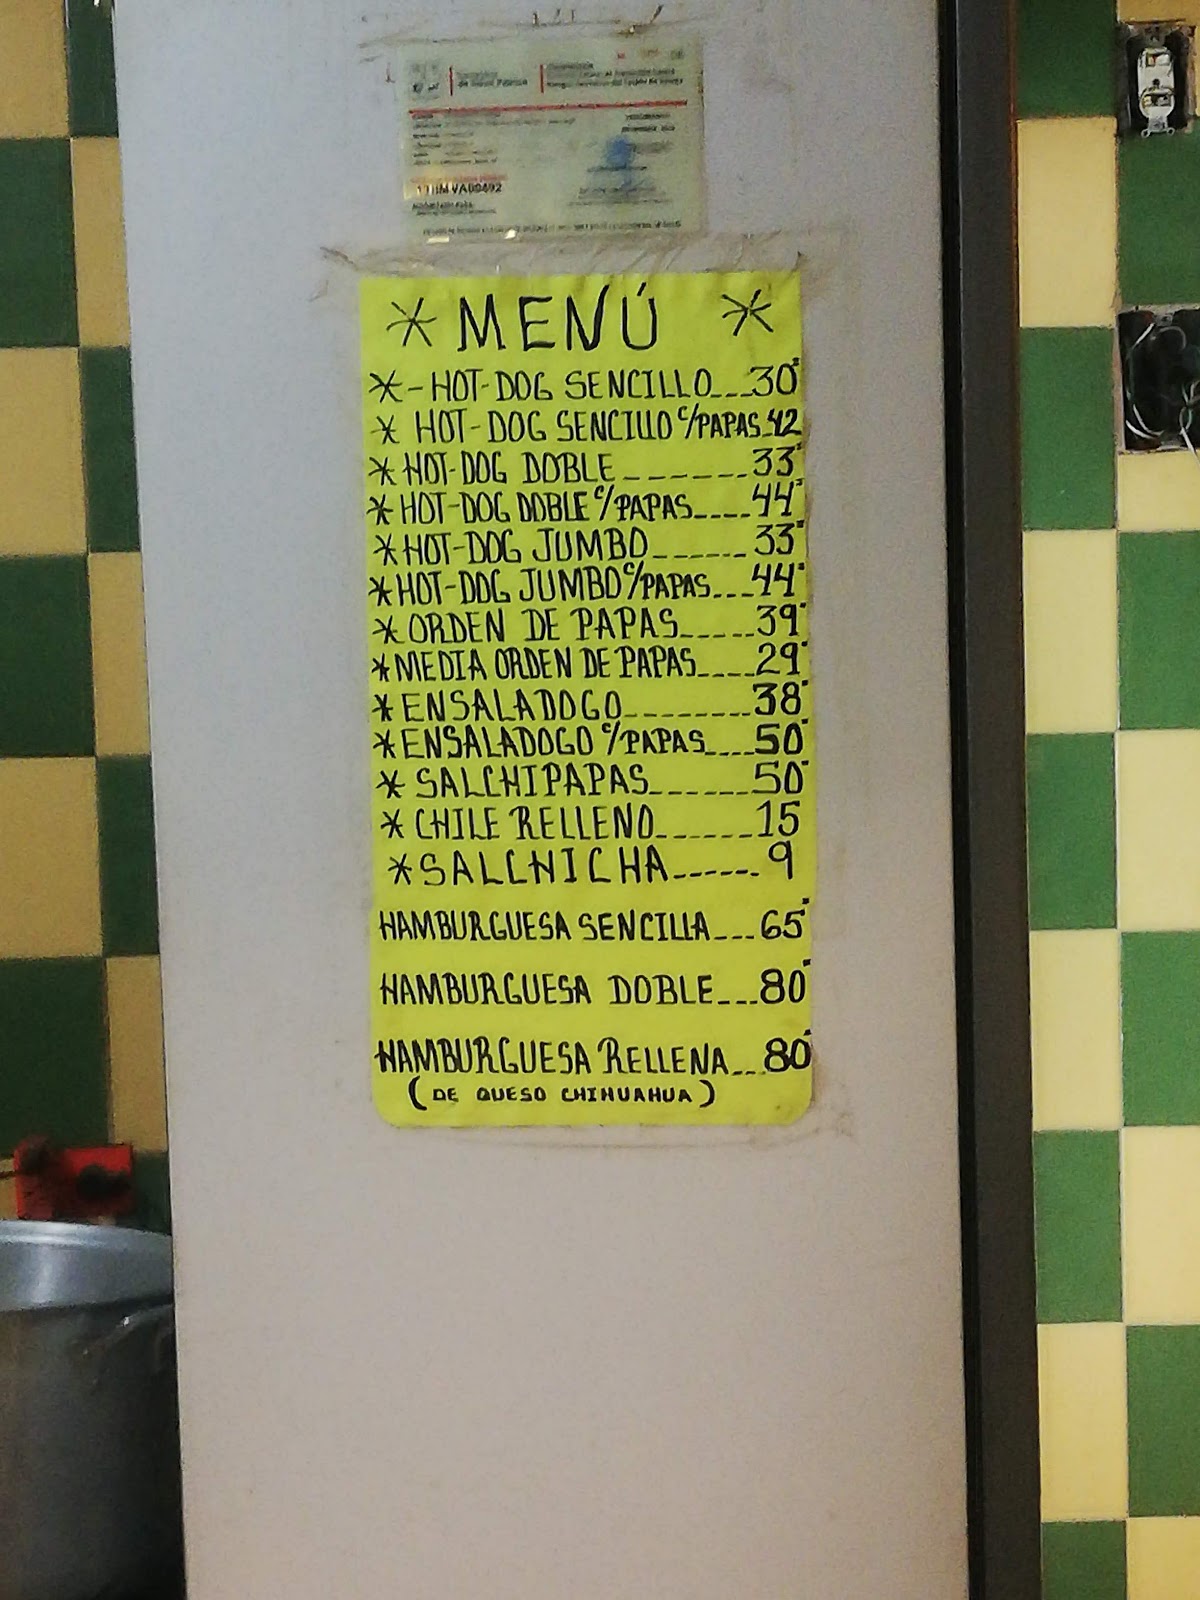 11IMVA00492
* MENÚ *
*-HOT-DOG SENCILLO___30
* HOT-DOG SENCILLO C/PAPAS_42
* HOT-DOG DOBLE______33
* HOT-DOG DOBLE C/PAPAS____44
* HOT-DOG JUMBO______33
* HOT-DOG JUMBO C/PAPAS___44
* ORDEN DE PAPAS_____39
* MEDIA ORDEN DE PAPAS____29
* ENSALADOGO________38
* ENSALADOGO C/PAPAS____50
* SALCHIPAPAS______50
* CHILE RELLENO______15
* SALCHICHA------9
HAMBURGUESA SENCILLA___65
HAMBURGUESA DOBLE___80
HAMBURGUESA RELLENA___80
(DE QUESO CHIHUAHUA)